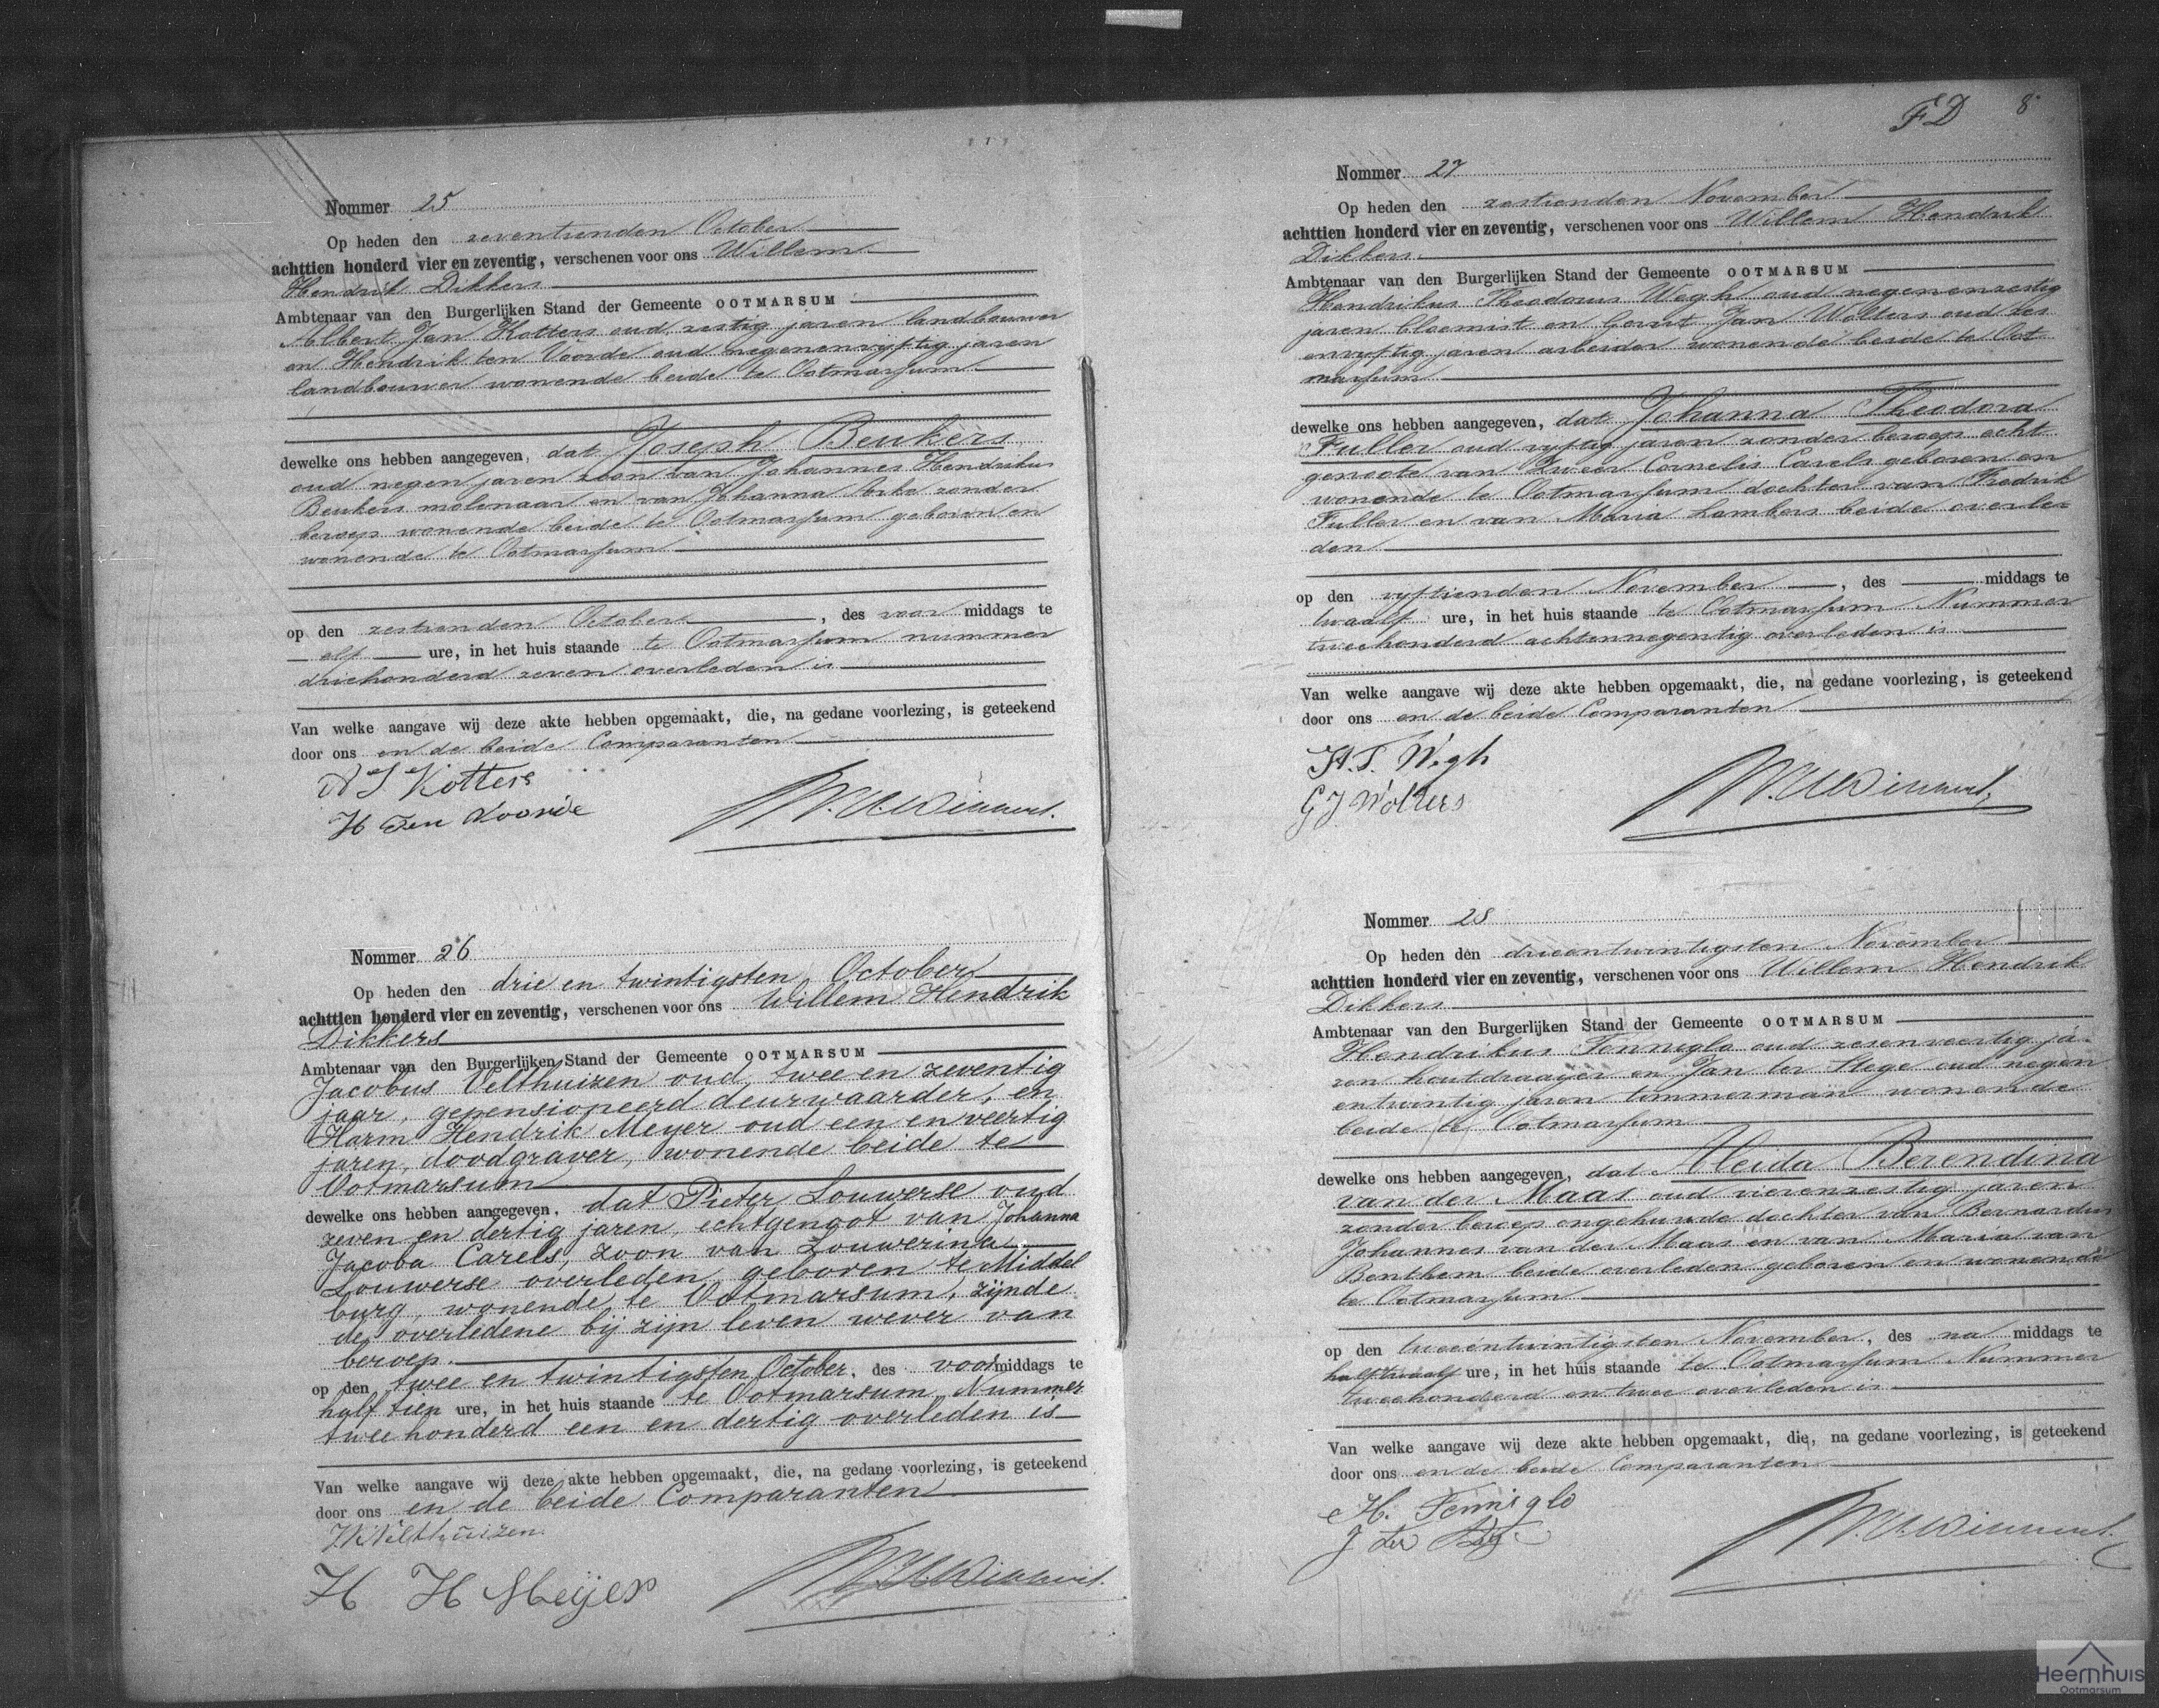 Nommer 25
Op heden den zeventienden October
achttien honderd vier en zeventig, verschenen voor ons Willem
Hendrik Dikkers
Ambtenaar van den Burgerlijken Stand der Gemeente OOTMARSUM
Albert Jan Kotters oud zestig jaren landbouwer
en Hendrik ten Voorde oud negenenvyftig jaren
landbouwer wonende beide te Ootmarsum
dewelke ons hebben aangegeven, dat Joseph Beukers
oud negen jaren zoon van Johannes Hendrikus
Beukers molenaar en van Johanna zonder
beroep wonende beide te Ootmarsum geboren en
wonende te Ootmarsum
op den zestienden October, des voor middags te
elf ure, in het huis staande te Ootmarsum nummer
driehonderd zeven overleden is
Van welke aangave wij deze akte hebben opgemaakt, die, na gedane voorlezing, is geteekend
door ons en de beide Comparanten
A J Kotters
H Ten Voorde
Nommer 26
Op heden den drie en twintigsten October
achttien honderd vier en zeventig, verschenen voor ons Willem Hendrik
Dikkers
Ambtenaar van den Burgerlijken Stand der Gemeente OOTMARSUM
Jacobus Velthuizen oud twee en zeventig
jaar, gepensioneerd deurwaarder, en
Harm Hendrik Meyer oud een en veertig
jaren, doodgraver, wonende beide te
Ootmarsum
dewelke ons hebben aangegeven, dat Pieter Louwerse oud
zeven en dertig jaren, echtgenoot van Johanna
Jacoba Carels, zoon van Louwerina
Louwerse overleden, geboren te Middel
burg, wonende te Ootmarsum, zijnde
de overledene bij zijn leven wever van
beroep.
op den twee en twintigsten October, des voormiddags te
half tien ure, in het huis staande te Ootmarsum, Nummer
twee honderd een en dertig overleden is
Van welke aangave wij deze akte hebben opgemaakt, die, na gedane voorlezing, is geteekend
door ons en de beide Comparanten
Velthuizen
H H Meijer
FD 8
Nommer 27
Op heden den zestienden November
achttien honderd vier en zeventig, verschenen voor ons Willem Hendrik
Dikkers
Ambtenaar van den Burgerlijken Stand der Gemeente OOTMARSUM
Hendrikus Theodorus Wegh oud negenenzestig
jaren bloemist en Gerrit Jan Wolters oud zes
envyftig jaren arbeider wonende beide te Oot
marsum
dewelke ons hebben aangegeven, dat Johanna Theodora
Fuller oud vyftig jaren zonder beroep echt
genoote van Zweer Cornelis Carels geboren en
wonende te Ootmarsum dochter van Fredrik
Fuller en van Maria Lambers beide overle-
den
op den vyftienden November, des middags te
twaalf ure, in het huis staande te Ootmarsum Nummer
tweehonderd achtennegentig overleden is
Van welke aangave wij deze akte hebben opgemaakt, die, na gedane voorlezing, is geteekend
door ons en de beide Comparanten
H.T. Wegh
G J Wolters
Nommer 28
Op heden den drieentwintigsten November
achttien honderd vier en zeventig, verschenen voor ons Willem Hendrik
Dikkers
Ambtenaar van den Burgerlijken Stand der Gemeente OOTMARSUM
Hendrikus Tenniglo oud zesenveertig ja-
ren houtdraayer en Jan ter Stege oud negen
entwintig jaren timmerman wonende
beide te Ootmarsum
dewelke ons hebben aangegeven, dat Aleida Berendina
van der Maas oud vierenzestig jaren
zonder beroep ongehuwde dochter van Bernardus
Johannes van der Maas en van Maria van
Benthem beide overleden geboren en wonende
te Ootmarsum
op den tweeentwintigsten November, des na middags te
halftwaalf ure, in het huis staande te Ootmarsum Nummer
tweehonderd en twee overleden is
Van welke aangave wij deze akte hebben opgemaakt, die, na gedane voorlezing, is geteekend
door ons en de beide Comparanten
H. Tenniglo
J ter Stege
Heernhuis
Ootmarsum